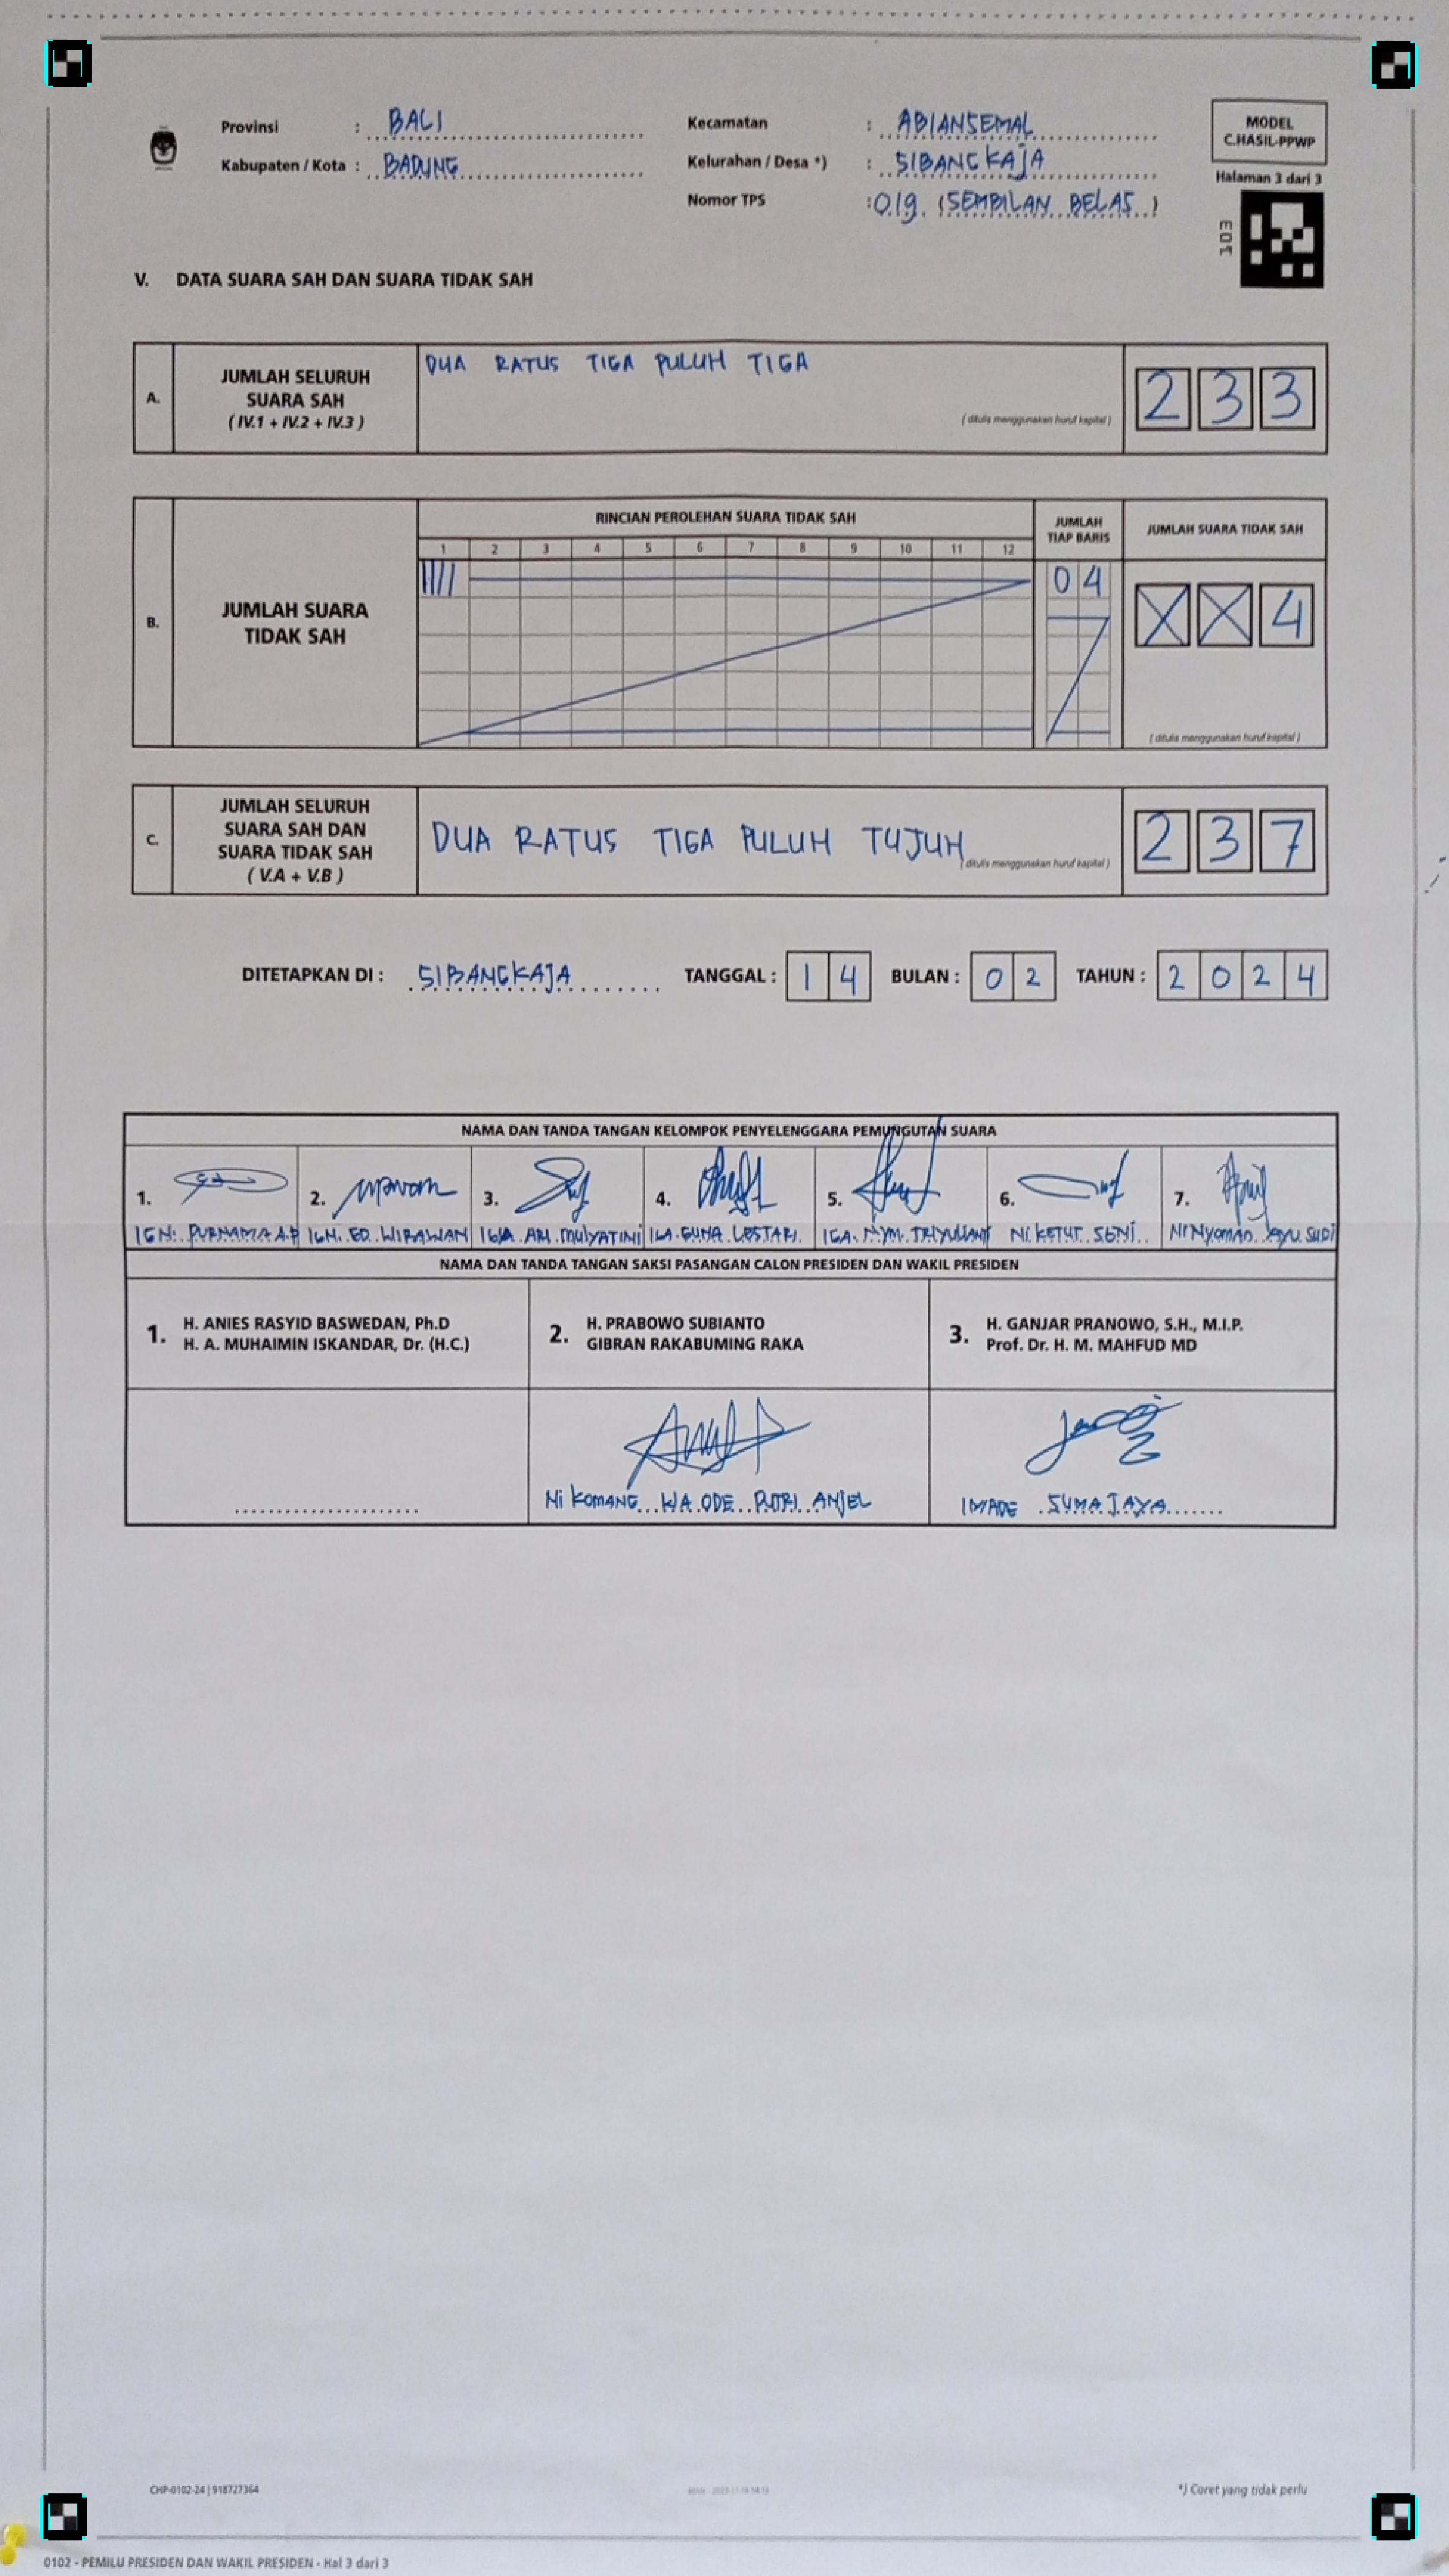 Provinsi : BALI
Kabupaten / Kota : BADUNG
Kecamatan : ABIANSEMAL
Kelurahan / Desa *) : SIBANGKAJA
Nomor TPS : 019 (SEMBILAN BELAS)
MODEL
C.HASIL-PPWP
Halaman 3 dari 3
V. DATA SUARA SAH DAN SUARA TIDAK SAH
A. JUMLAH SELURUH SUARA SAH ( IV.1 + IV.2 + IV.3 )
DUA RATUS TIGA PULUH TIGA
( ditulis menggunakan huruf kapital )
2 3 3
B. JUMLAH SUARA TIDAK SAH
RINCIAN PEROLEHAN SUARA TIDAK SAH
1 2 3 4 5 6 7 8 9 10 11 12
JUMLAH TIAP BARIS
0 4
JUMLAH SUARA TIDAK SAH
X X 4
( ditulis menggunakan huruf kapital )
C. JUMLAH SELURUH SUARA SAH DAN SUARA TIDAK SAH ( V.A + V.B )
DUA RATUS TIGA PULUH TUJUH
( ditulis menggunakan huruf kapital )
2 3 7
DITETAPKAN DI : SIBANGKAJA TANGGAL : 1 4 BULAN : 0 2 TAHUN : 2 0 2 4
NAMA DAN TANDA TANGAN KELOMPOK PENYELENGGARA PEMUNGUTAN SUARA
1. 2. 3. 4. 5. 6. 7.
IGN. PURNAMA A.P
IGN. ED. WIRAWAN
IGA ARI MULYATINI
LESTARI
IGA. NYM.
NI KETUT SENI
Ni Nyoman Ayu
NAMA DAN TANDA TANGAN SAKSI PASANGAN CALON PRESIDEN DAN WAKIL PRESIDEN
1. H. ANIES RASYID BASWEDAN, Ph.D
H. A. MUHAIMIN ISKANDAR, Dr. (H.C.)
2. H. PRABOWO SUBIANTO
GIBRAN RAKABUMING RAKA
3. H. GANJAR PRANOWO, S.H., M.I.P.
Prof. Dr. H. M. MAHFUD MD
Ni KOMANG WA ODE PUTRI ANJEL
I MADE SUMAJAYA
CHP-0102-24 | 918727364
*) Coret yang tidak perlu
0102 - PEMILU PRESIDEN DAN WAKIL PRESIDEN - Hal 3 dari 3